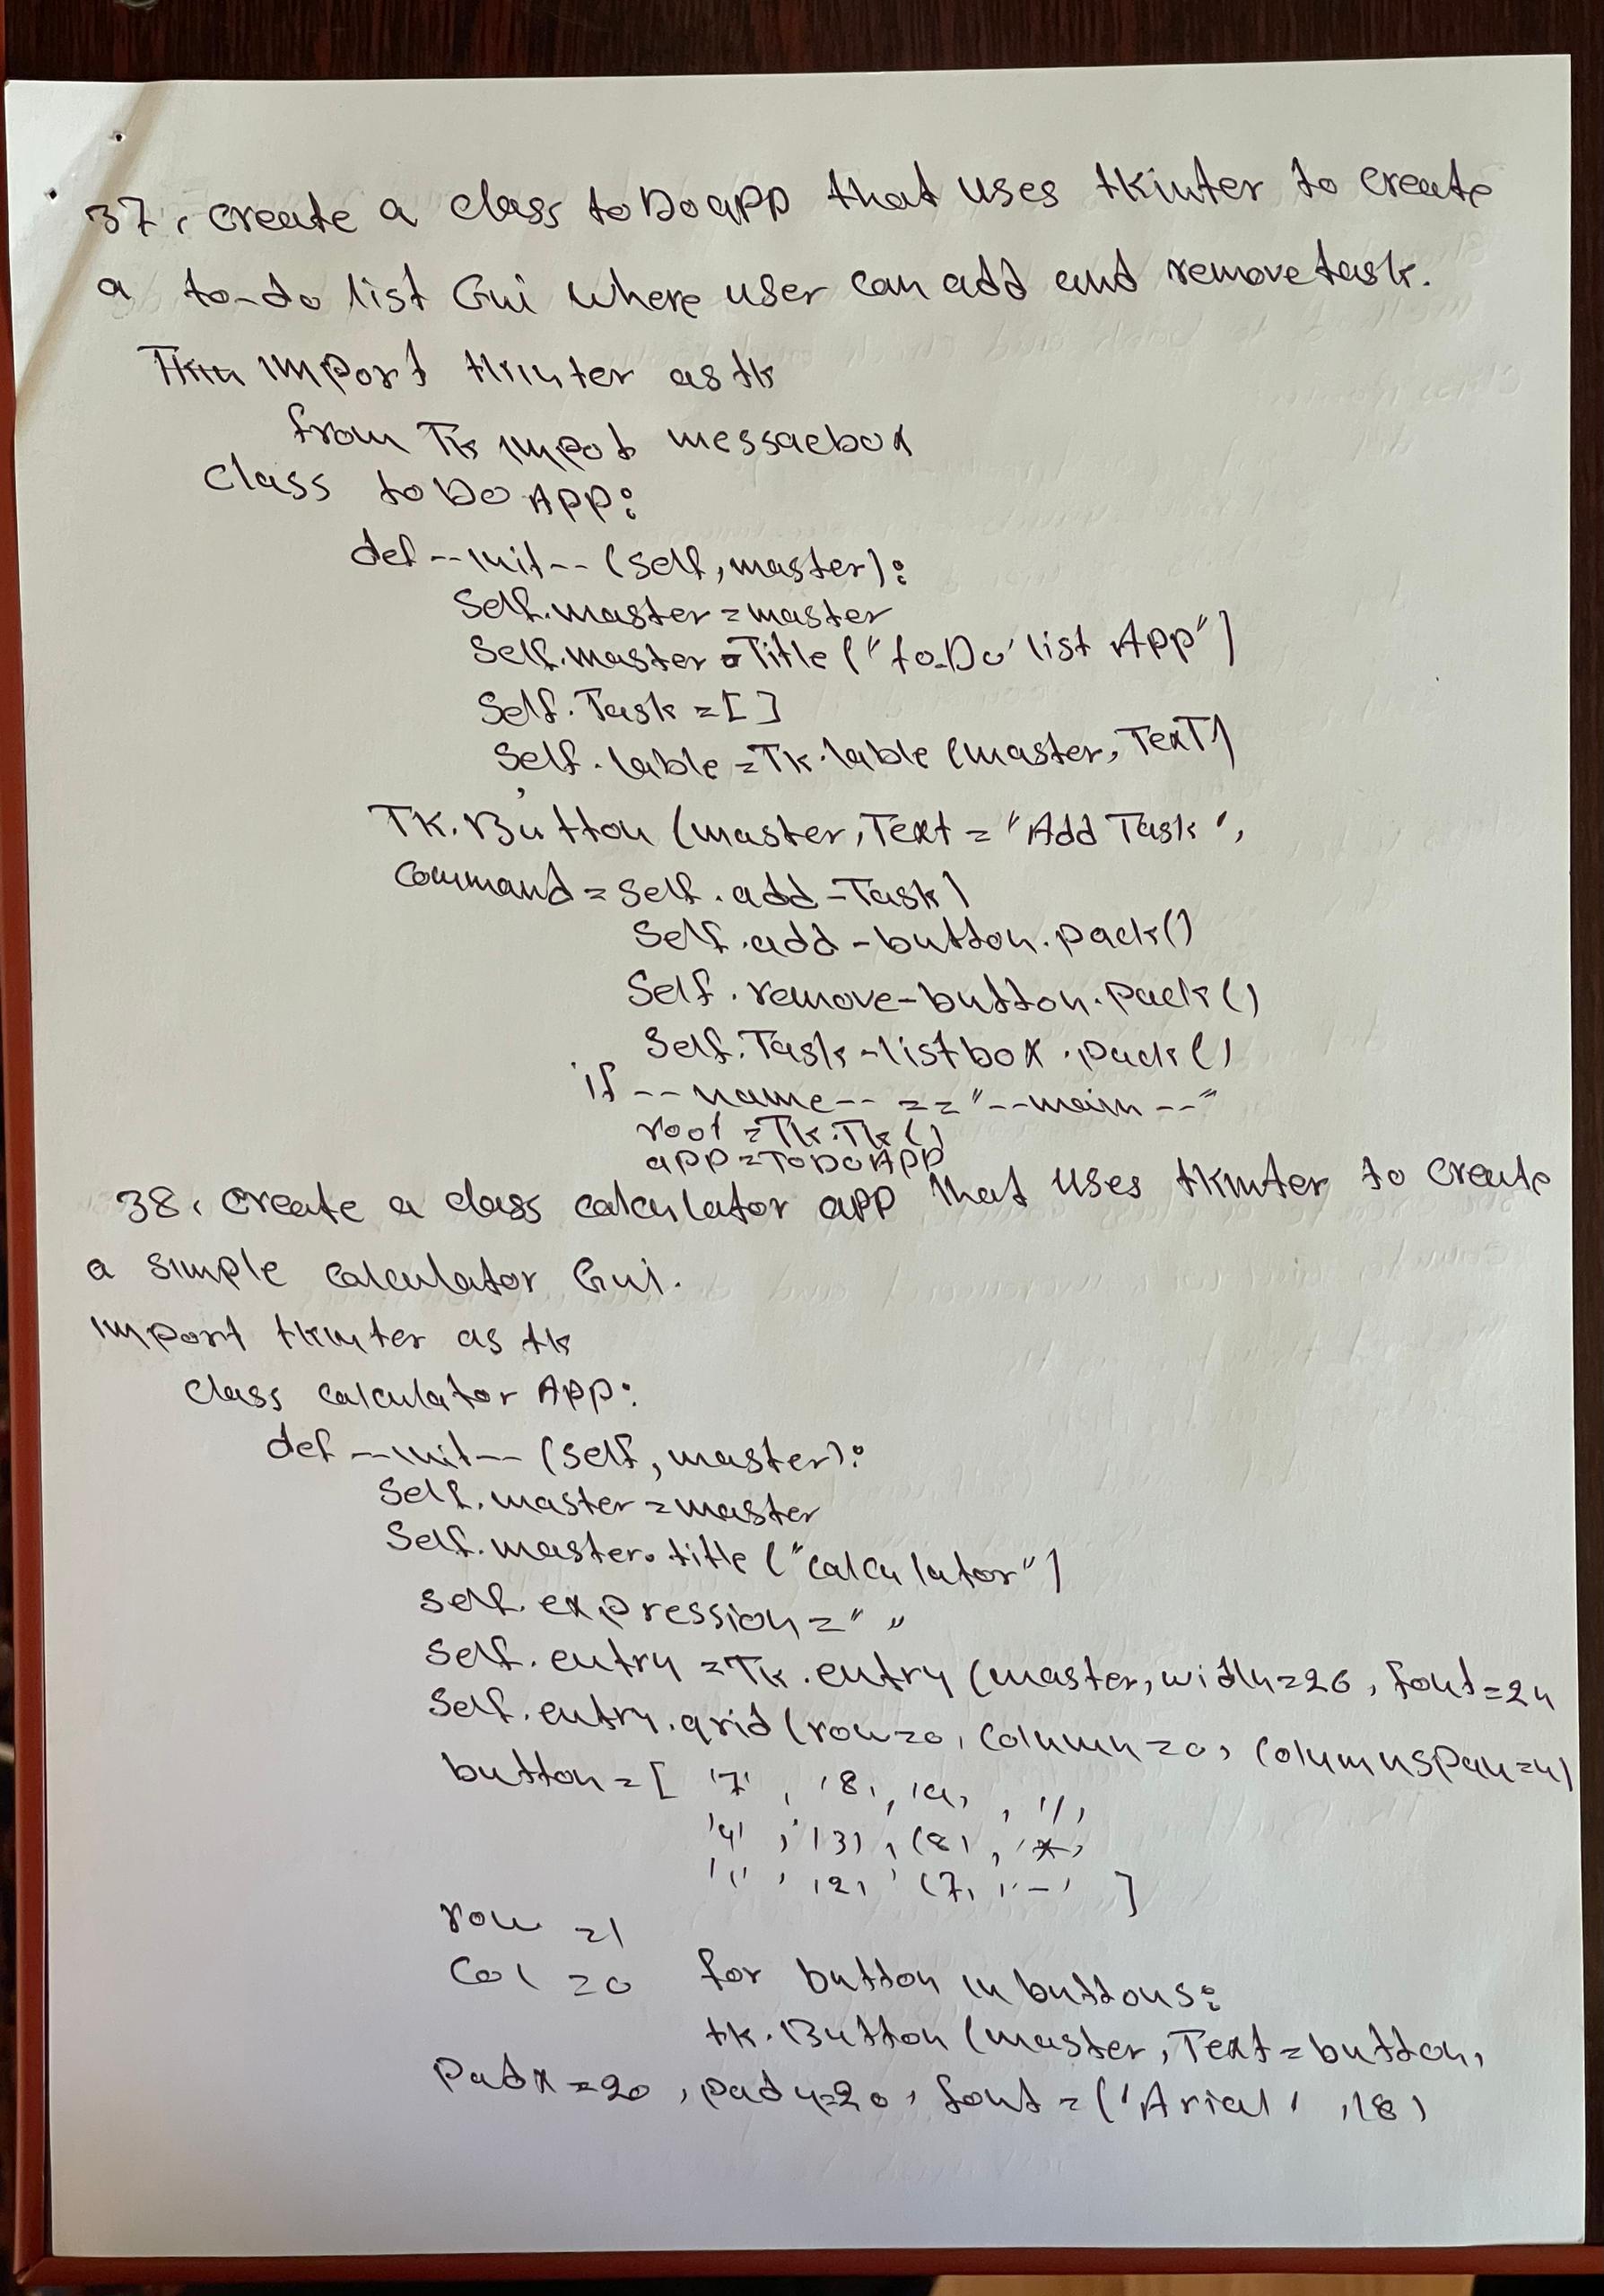 37. create a class toDoapp that uses tkinter to create
a to-do list Gui where user can add and remove task.
import tkinter as tk
from Tk impot messaebox
class toDo App:
def --init-- (self, master):
self.master = master
self.master = Title ("to-Do list App")
self.Task = [ ]
self.lable = Tk.lable (master, TexT)
TK.Button (master, Text = "Add Task",
command = self.add-Task)
self.add-button.pack()
self.remove-button.pack()
self.Task-listbox.pack()
if --name-- == "--main--"
root = Tk.Tk()
app = ToDoApp
38. create a class calculator app that uses tkinter to create
a simple calculator Gui.
import tkinter as tk
class calculator App:
def --init-- (self, master):
self.master = master
self.master.title ("calculator")
self.expression = " "
self.entry = Tk.entry (master, width=26, font=24
self.entry.grid (row=0, column=0, columnspan=4)
button = [ '7', '8', '9', '/',
'4', '3', (8), '*,
'1', '2', (7, '-' ]
row =1
col =0 for button in buttons:
tk.Button (master, Text = button,
padx=20, pady=20, font = ('Arial', 18)